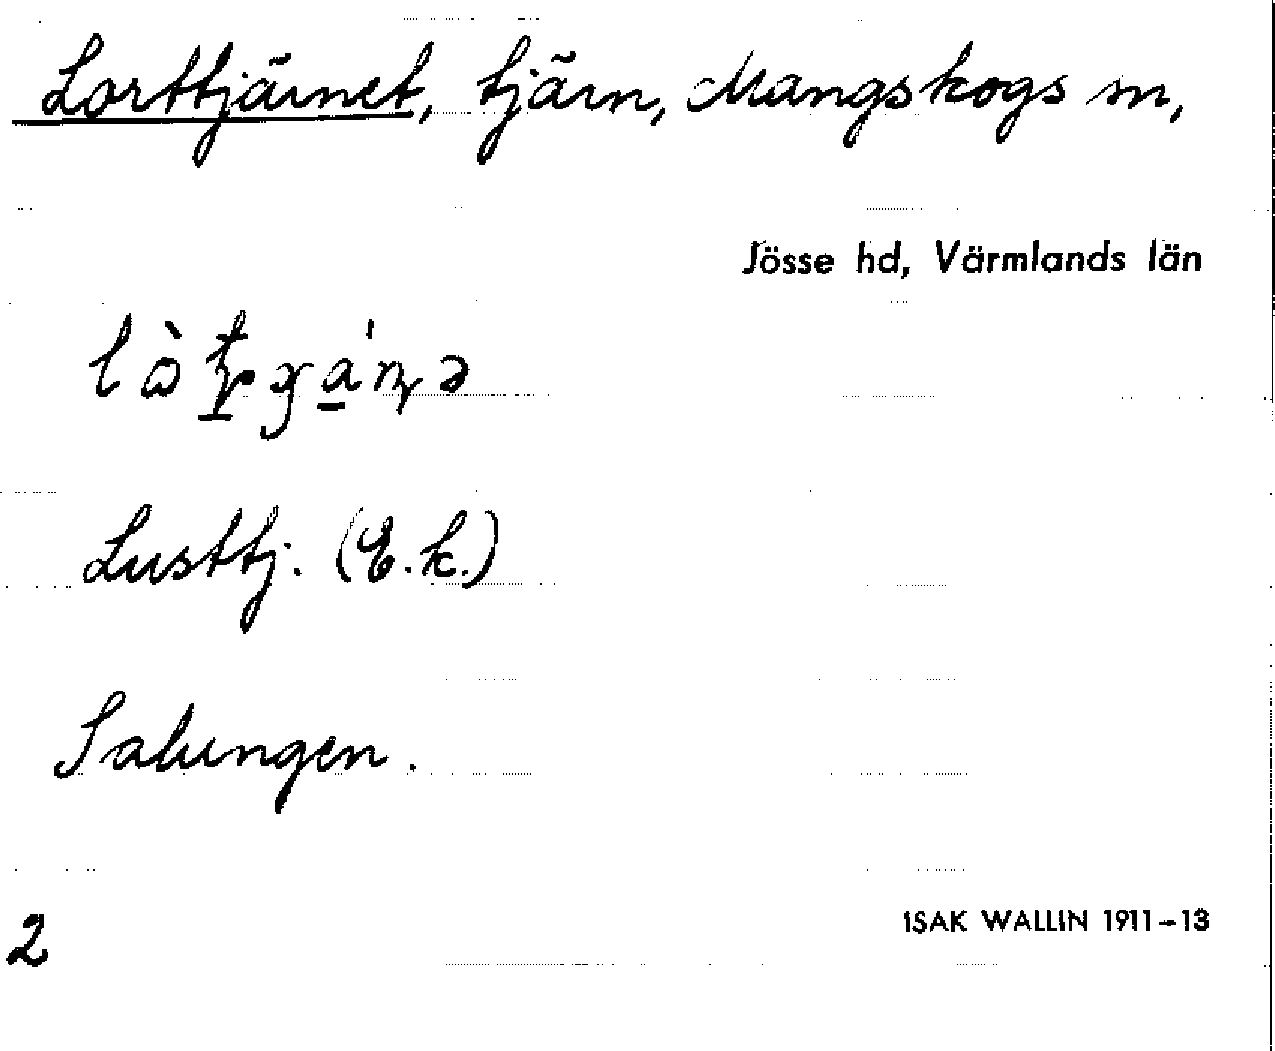 Lorttjärnet, tjärn, Mangskogs sn,
Jösse hd, Värmlands län
Lusttj. (E.k.)
Salungen.
2
ISAK WALLIN 1911–13